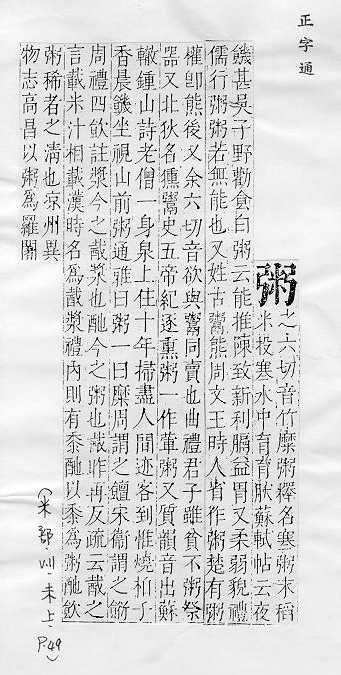 正字通
粥
之六切音竹糜粥釋名寒粥末稻
米投寒水中育育肰蘇軾帖云夜
饑甚吳子野勸食白粥云能推陳致新利膈益胃又柔弱貌禮
儒行粥粥若無能也又姓古鬻熊周文王時人省作粥楚有粥
權卽熊後又余六切音欲與鬻同賣也曲禮君子雖貧不粥祭
器又北狄名獯鬻史五帝紀逐熏粥一作葷粥又質韻音出蘇
轍鍾山詩老僧一身泉上住十年掃盡人間迹客到惟燒柏子
香晨饑坐視山前粥通雅曰粥一曰糜周謂之饘宋衞謂之餰
周禮四飲註漿今之酨漿也酏今之粥也酨昨再反疏云酨之
言載米汁相載漢時名爲酨漿禮內則有黍酏以黍爲粥酏飲
粥稀者之淸也凉州異
物志高昌以粥爲羅闍
(米部.川未上.P.49)